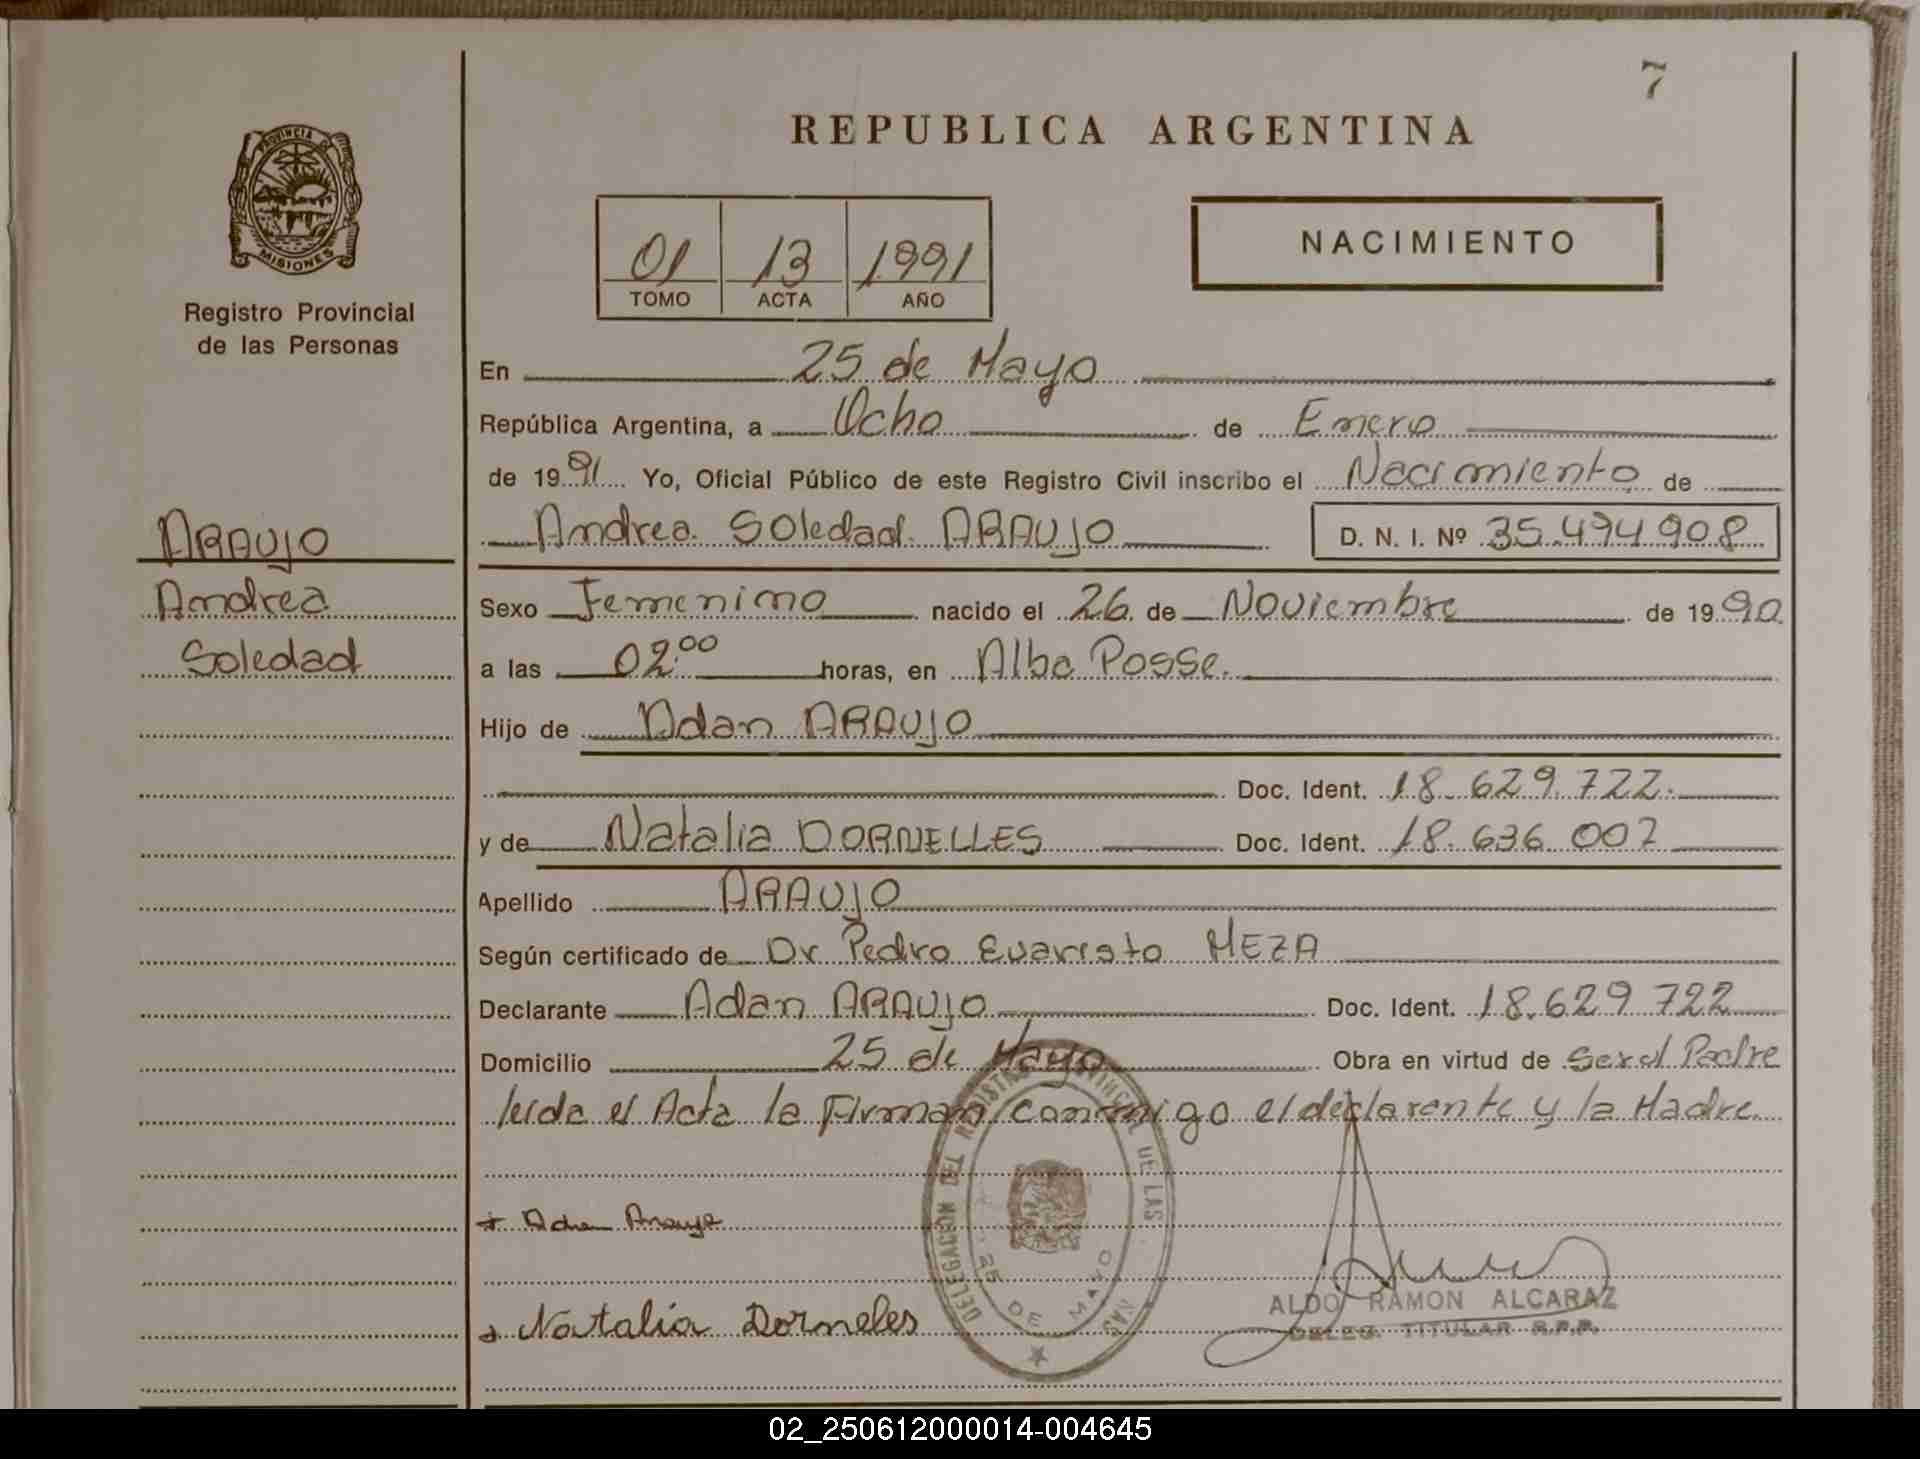 7
REPUBLICA ARGENTINA
PROVINCIA DE
MISIONES
Registro Provincial
de las Personas
01 13 1991
TOMO ACTA AÑO
NACIMIENTO
En 25 de Mayo
República Argentina, a Ocho de Enero
de 1991 Yo, Oficial Público de este Registro Civil inscribo el Nacimiento de
ARAUJO
Andrea
Soledad
Andrea Soledad ARAUJO D. N. I. Nº 35.494.908
Sexo Femenino nacido el 26 de Noviembre de 1990
a las 02:00 horas, en Alba Posse.
Hijo de Adan ARAUJO
Doc. Ident. 18.629.722.
y de Natalia DORNELLES Doc. Ident. 18.636.007
Apellido ARAUJO
Según certificado de Dr Pedro Evaristo MEZA
Declarante Adan ARAUJO Doc. Ident. 18.629.722
Domicilio 25 de Mayo Obra en virtud de Ser el Padre
leida el Acta la Firman conmigo el declarante y la Madre.
Adan Araujo
Natalia Dorneles
DELEGACION DEL REGISTRO PROVINCIAL DE LAS
25 DE MAYO
ALDO RAMON ALCARAZ
DELEG. TITULAR R.P.P.
02_250612000014-004645